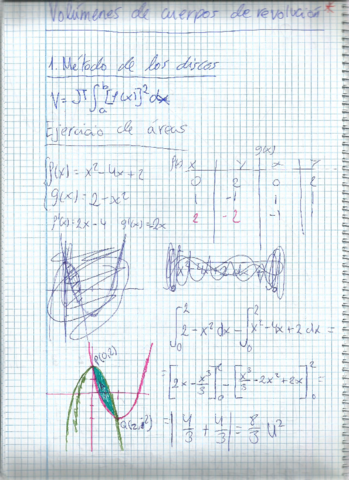 Volúmenes de cuerpos de revolución *
1. Método de los discos
V = π ∫ₐᵇ [f(x)]² dx
Ejercicio de áreas
f(x) = x² - 4x + 2
g(x) = 2 - x²
f'(x) = 2x - 4 g'(x) = -2x
f(x) x y g(x) x y
0 2 0 2
1 -1 1 1
2 -2 -1 1
∫₀² 2 - x² dx - ∫₀² x² - 4x + 2 dx =
P(0,2)
[2x - x³/3]₀² - [x³/3 - 2x² + 2x]₀² =
Q(2,-2)
= |4/3 + 4/3| = 8/3 u²